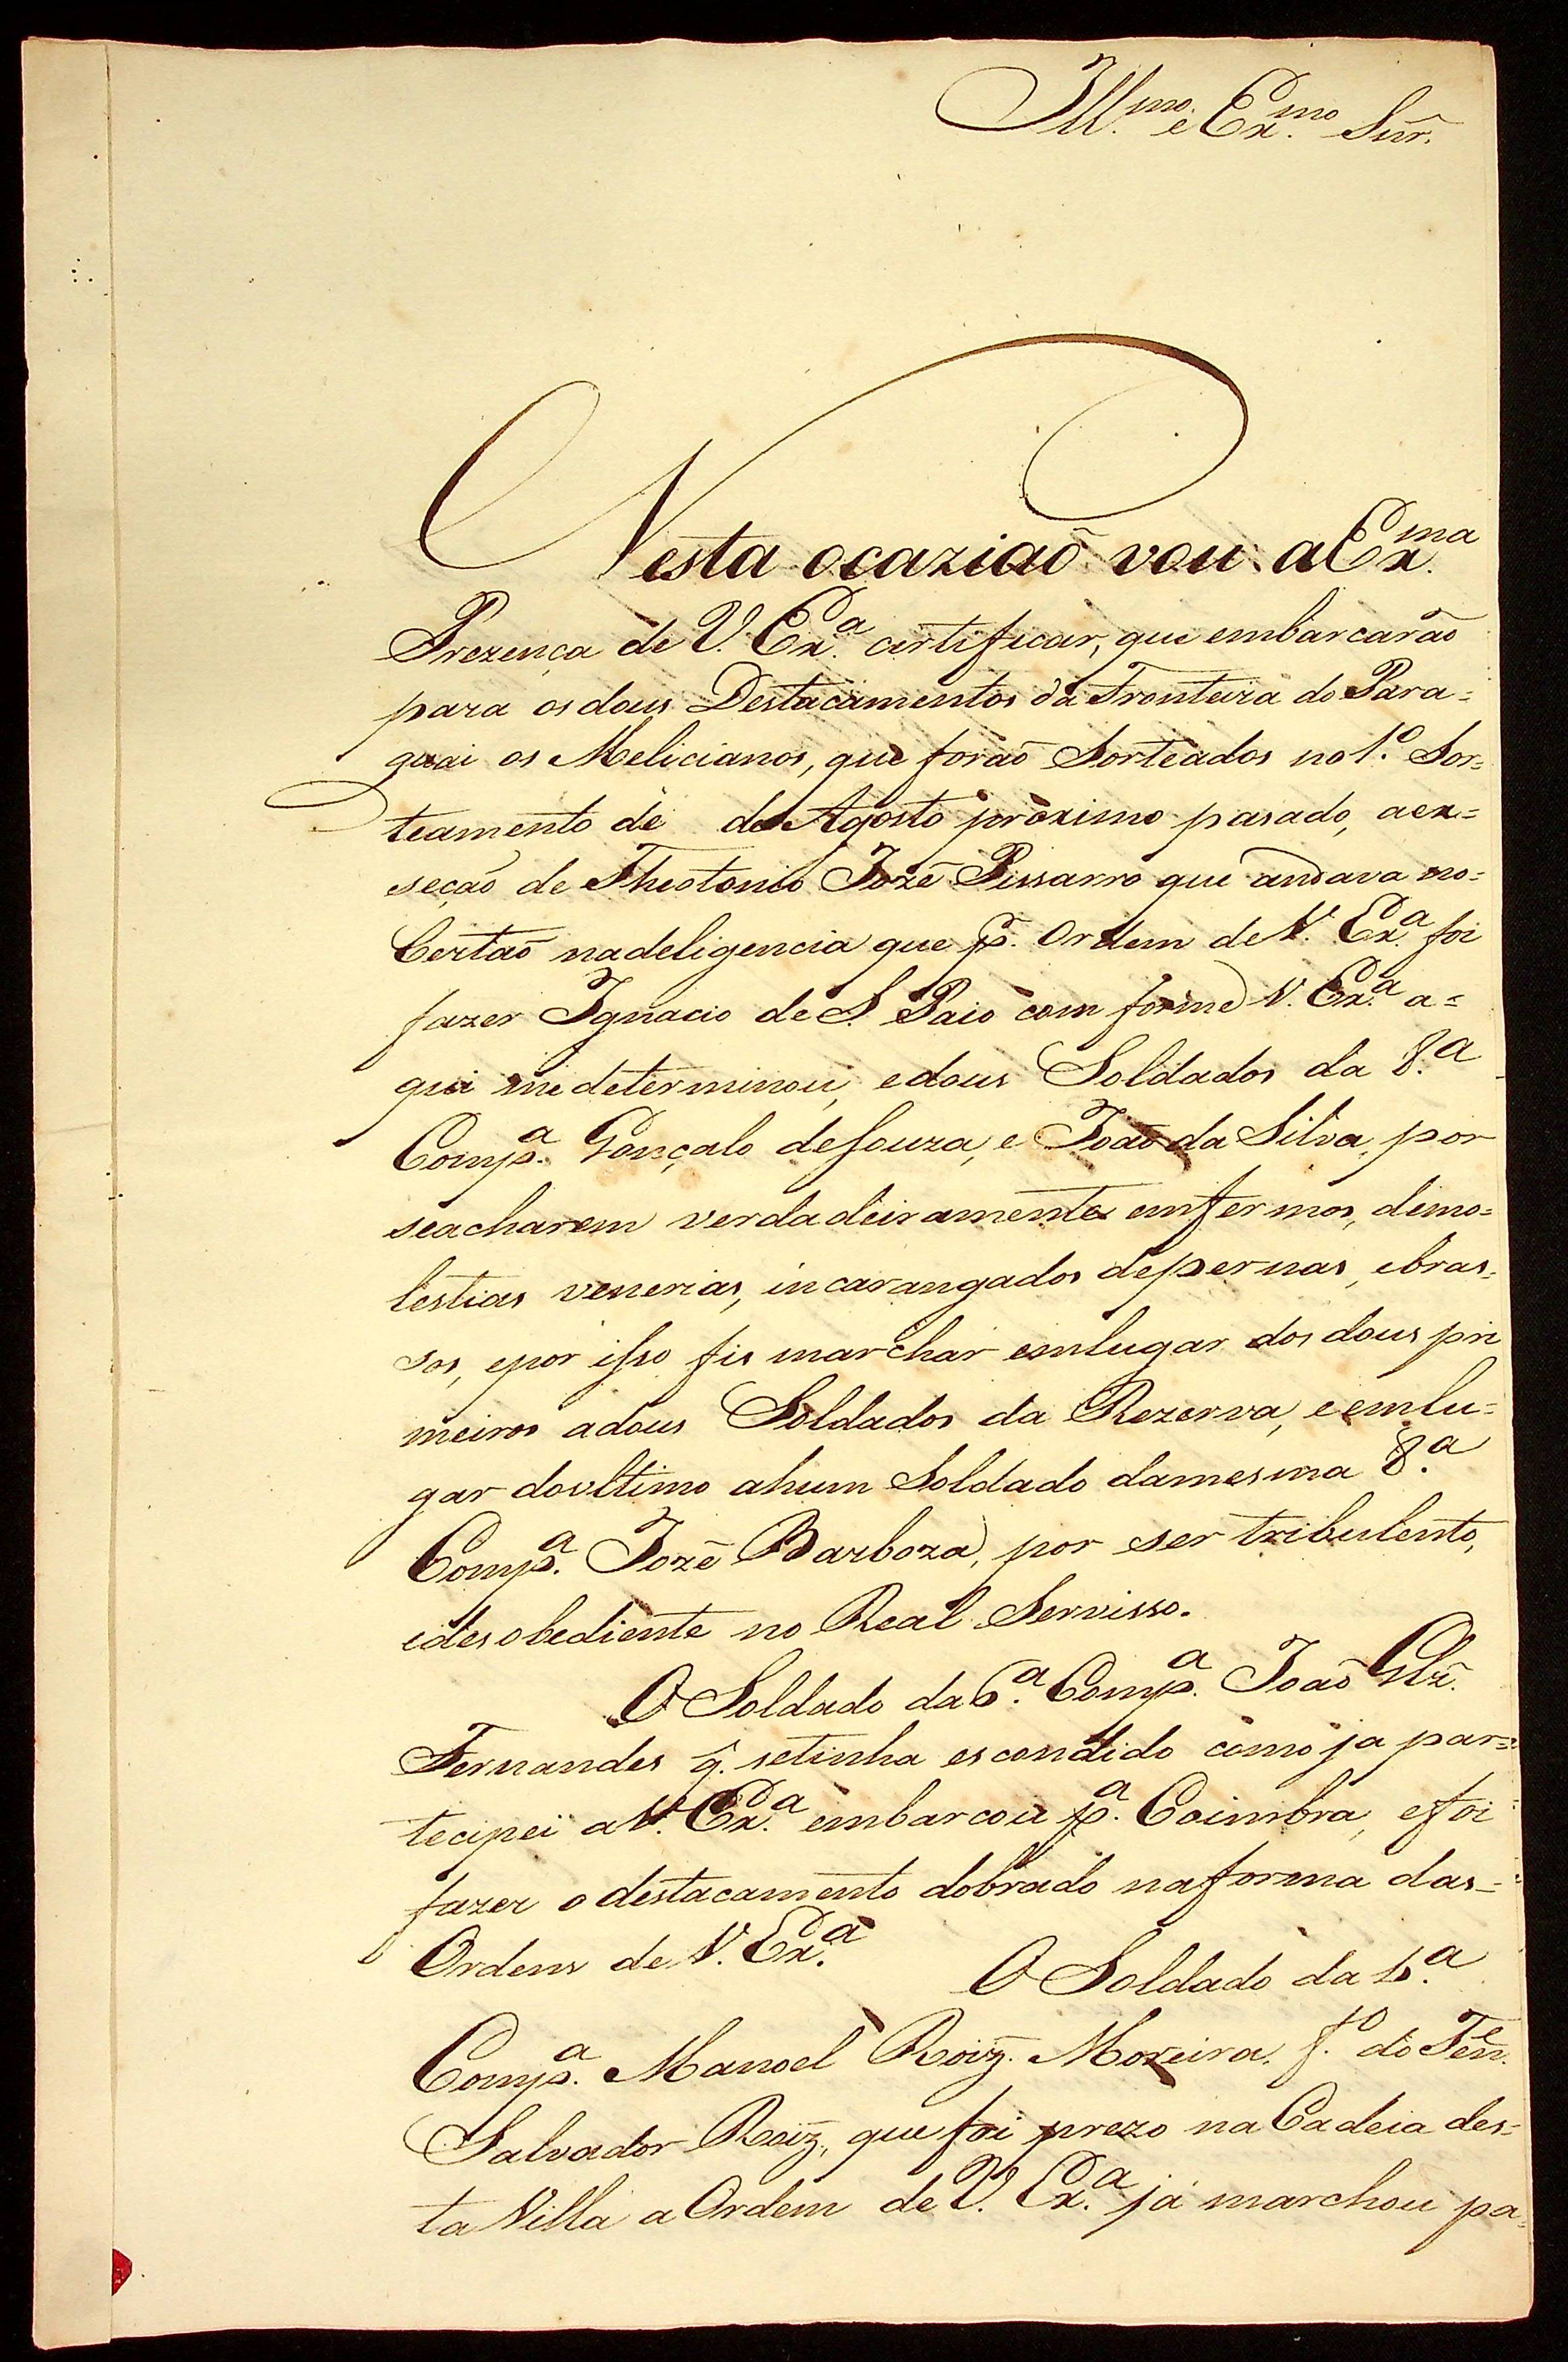 Ill.mo e Ex.mo Snr̃.
Nesta ocaziaõ vou a Ex.ma
Prezença de V. Ex.a certificar, que embarcaraõ
para os dous Destacamentos da Fronteira do Para=
guai os Melicianos, que foraõ Sorteados no 1.o Sor=
teamento de de Agosto proximo pasado, a ex=
seçaõ de Theotonio Jozé Pissarro que andava no=
Certaõ na deligencia que p.r Ordem de V. Ex.a foi
fazer Ignacio de S. Paio com forme V. Ex.a a=
qui me determinou, e dous Soldados da 8.a
Comp.a Gonçalo de Souza, e Joaõ da Silva, por
se acharem verdadeiramente emfermos, de mo=
lestias venerias, incarangados de pernas, e bras=
sos, e por isso fis marchar em lugar dos dous pri
meiros a dous Soldados da Rezerva, e em lu=
gar do oltimo a hum Soldado da mesma 8.a
Comp.a Jozé Barboza, por ser tribulento,
e desobediente no Real Servisso.
O Soldado da 6.a Comp.a Joaõ Glz̃.
Fernandes q̃. se tinha escondido como ja par=
tecipei a V. Ex.a embarcou p.a Coimbra, e foi
fazer o destacamento dobrado na forma das=
Ordens de V. Ex.a O Soldado da 6.a
Comp.a Manoel Roiz̃. Moreira. f.o do Ten.e
Salvador Roiz̃., que foi prezo na Cadeia des=
ta Villa a Ordem de V. Ex.a já marchou pa=